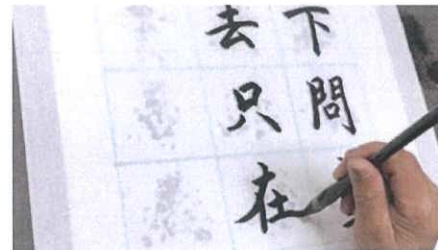 下問
去只在